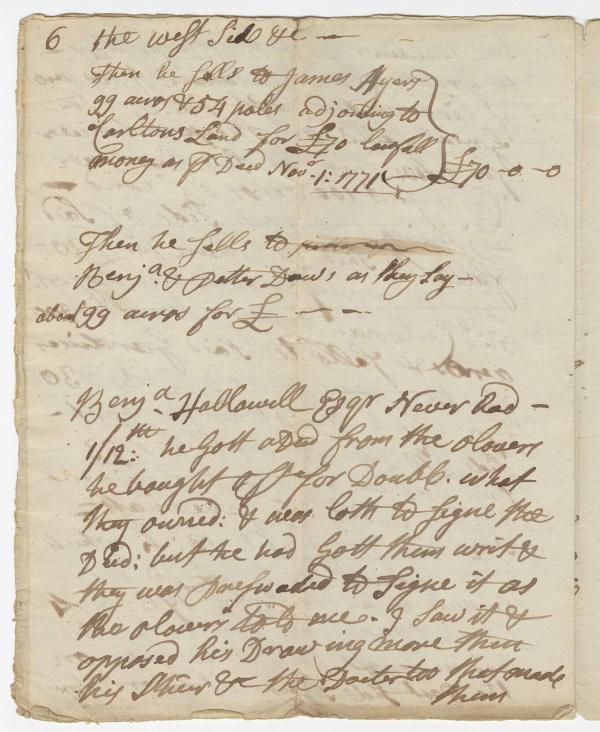 6 the west Side &c —
Then he sells to James Ayers
99 acres & 54 poles adjoining to
Carltons Land for £70 lawfull
money as pr Deed Novr. 1: 1771 £70-0-0
Then he sells to
Benja. & Petter Daws as they Say —
about 99 acres for £ — — —
Benja. Hallowell Esqr Never had —
1/12th: he Gott a Deed from the olovers
he bought off for Double what
they owned: & was loth to Signe the
Deed: but he had Gott them writ &
they was Preswaded to Signe it as
the olovers told me. I saw it &
opposed his Drawing more then
his Shear &c the Docter too
them